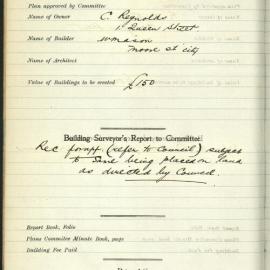 Plan approved by Committee
Name of Owner C. Reynolds
1 Queen Street
Name of Builder W Mason
Moore St city
Name of Architect
Value of Buildings to be erected £150
Building Surveyor's Report to Committee.
Rec for app. (refer to Council) subject
to same being placed on land
as directed by Council.
Report Book, Folio
Plans Committee Minute Book, page
Building Fee Paid